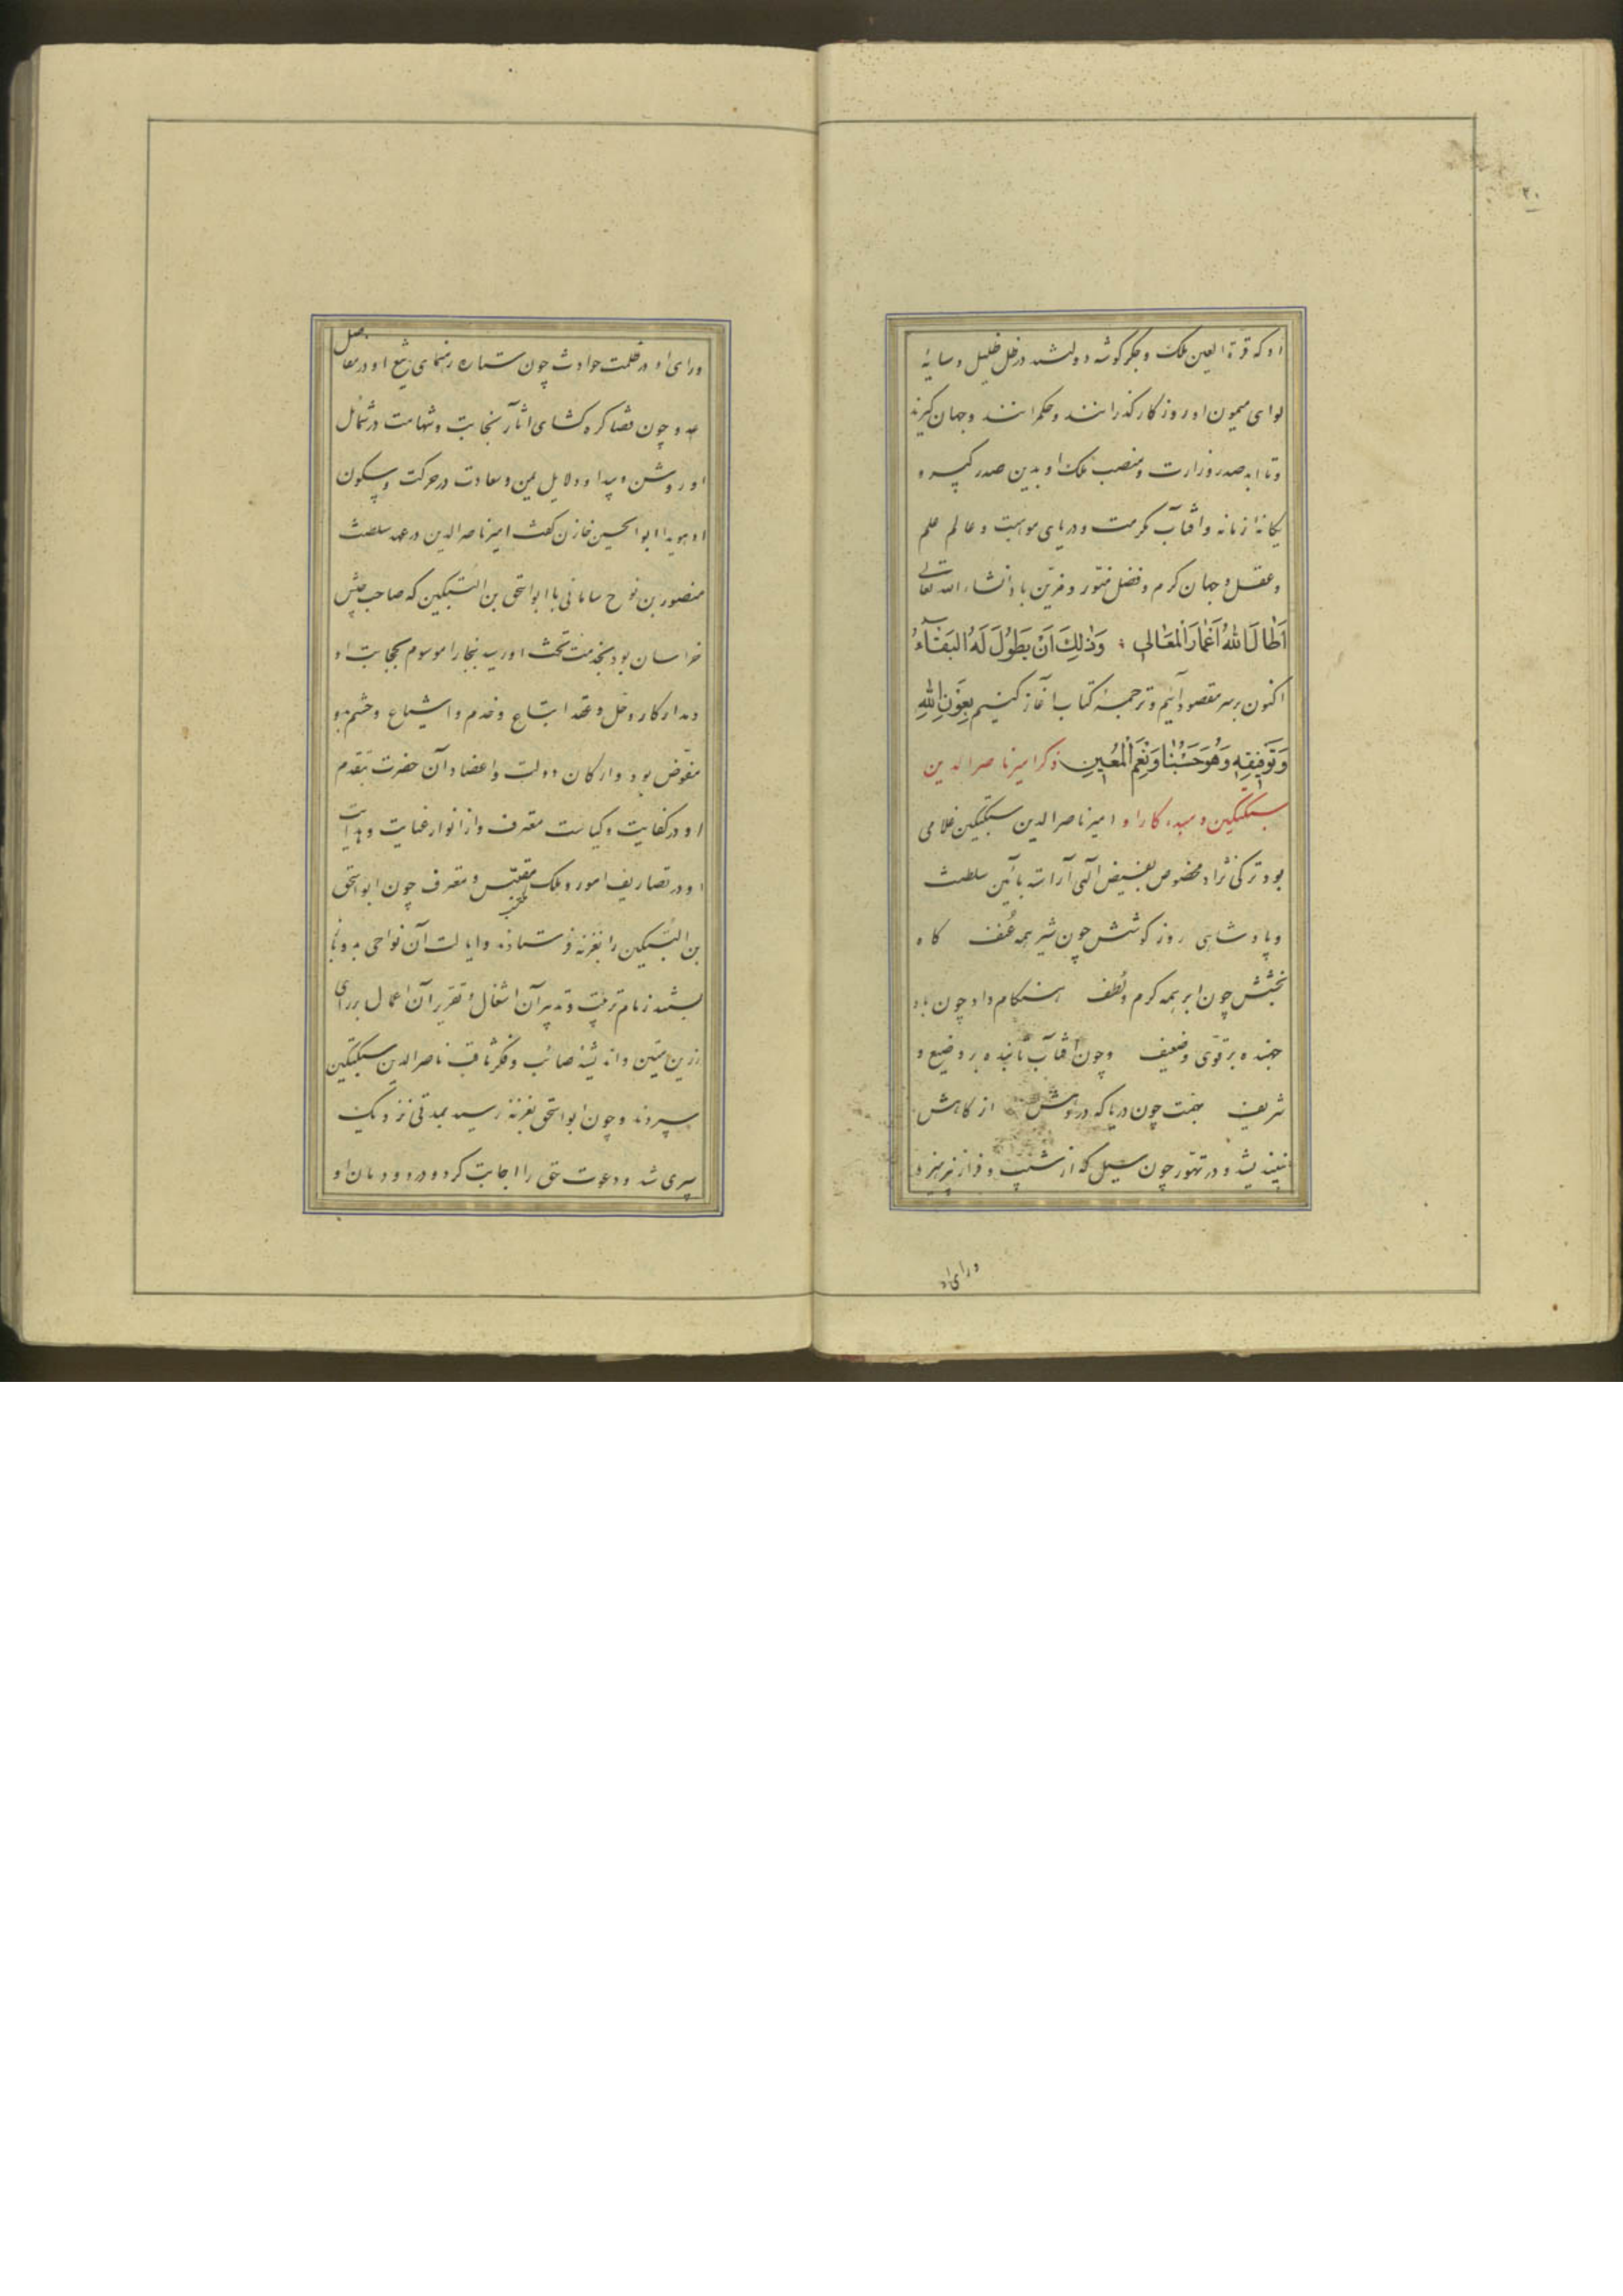 ۲۰
او که قرة العین ملک و جگر گوشه دولتند در ظل ظلیل و سایهٔ
لوای میمون او روزگار گذرانند و حکم رانند و جهان گیرند
و تا ابد صدر وزارت و منصب ملک او بدین صدر کبیر و
یگانهٔ زمانه و آفتاب مکرمت و دریای موهبت و عالم علم
و عقل و جهان کرم و فضل منوّر و مزیّن باد انشاء الله تعالی
اَطالَ اللهُ اَعْمارَ الْمَعالی وَذٰلِکَ اَنْ یَطُولَ لَهُ الْبَقاءُ
اکنون بر سر مقصود آئیم و ترجمهٔ کتاب آغاز کنیم بِعَوْنِ اللهِ
وَتَوْفیقِهِ وَهُوَ حَسْبُنا وَنِعْمَ الْمُعینِ ذکر امیر ناصر الدین
سبکتکین و مبدء کار او امیر ناصر الدین سبکتکین غلامی
بود ترکی نژاد مخصوص بفیض الهی آراسته بآئین سلطنت
و پادشاهی روز کوشش چون شیر همه عُنف گاه
بخشش چون ابر همه کرم و لُطف هنگام داد چون باد
جهنده بر قوی و ضعیف و چون آفتاب تابنده بر وضیع و
شریف بهمت چون دریا که در دهش از کاهش
نیندیشد و در تهوّر چون سیل که از نشیب و فراز نپرهیزد
ورای او
ورای او در ظلمت حوادث چون ستاره رهنمای تیغ او در مفاصل
عدو چون قضا گره گشای آثار نجابت و شهامت در شمایل
او روشن و پیدا و دلایل یمن و سعادت در حرکت و سکون
او هویدا ابو الحسین خازن گفت امیر ناصر الدین در عهد سلطنت
منصور بن نوح سامانی با ابو اسحق بن البتکین که صاحب جیش
خراسان بود بخدمت تخت او رسید ببخارا موسوم بحجابت او
و مدار کار و حل و عقد اتباع و خدم و اشیاع و حشم بدو
مفوّض بود و ارکان دولت و اعضاد آن حضرت بتقدم
او در کفایت و کیاست معترف و از انوار عنایت و هدایت
او در تصاریف امور و ملک مقتبس و مغترف چون ابو اسحق
بن البتکین را بغزنه فرستادند و ایالت آن نواحی بدو
بستند زمام ترتیب و تدبیر آن اشغال و تقریر آن اعمال برای
رزین متین و اندیشهٔ صائب و فکر ثاقب ناصر الدین سبکتکین
سپردند و چون ابو اسحق بغزنه رسید بمدتی نزدیک
سپری شد و دعوت حق را اجابت کرد و در دودمان او